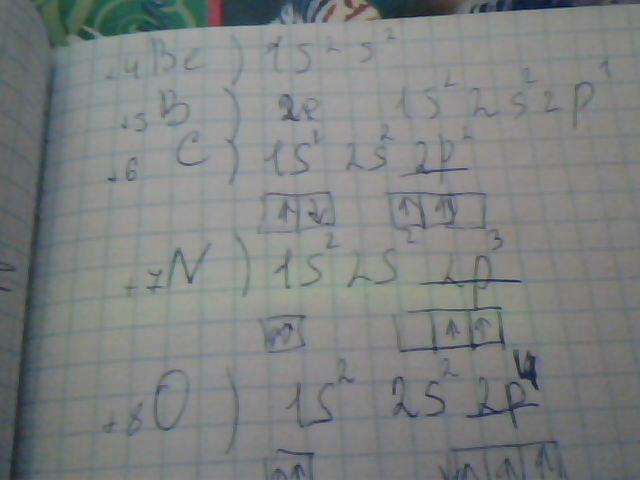 +4 Be ) 1s² s²
+5 B ) 2p 1s² 2s² 2p¹
+6 C ) 1s² 2s² 2p²
↑ ↓ ↑ ↑
+7 N ) 1s² 2s² 2p³
↑ ↑
+8 O ) 1s² 2s² 2p⁴
↑ ↑ ↑